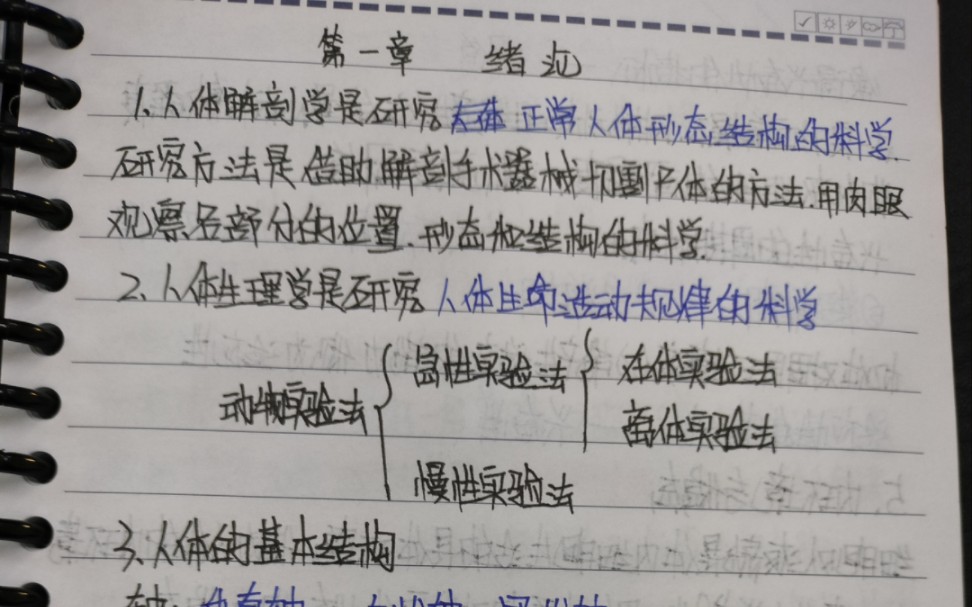 第一章 绪论
1、人体解剖学是研究 正常人体形态结构的科学.
研究方法是借助解剖手术器械切割尸体的方法.用肉眼
观察各部分的位置.形态和结构的科学.
2、人体生理学是研究人体生命活动规律的科学
动物实验法 急性实验法 在体实验法
离体实验法
慢性实验法
3、人体的基本结构